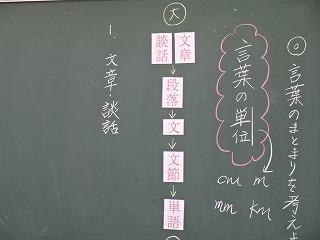 ◎言葉のまとまりを考えよ
言葉の単位
cm m
mm km
大
文章
談話
段落
文
文節
単語
1. 文章・談話